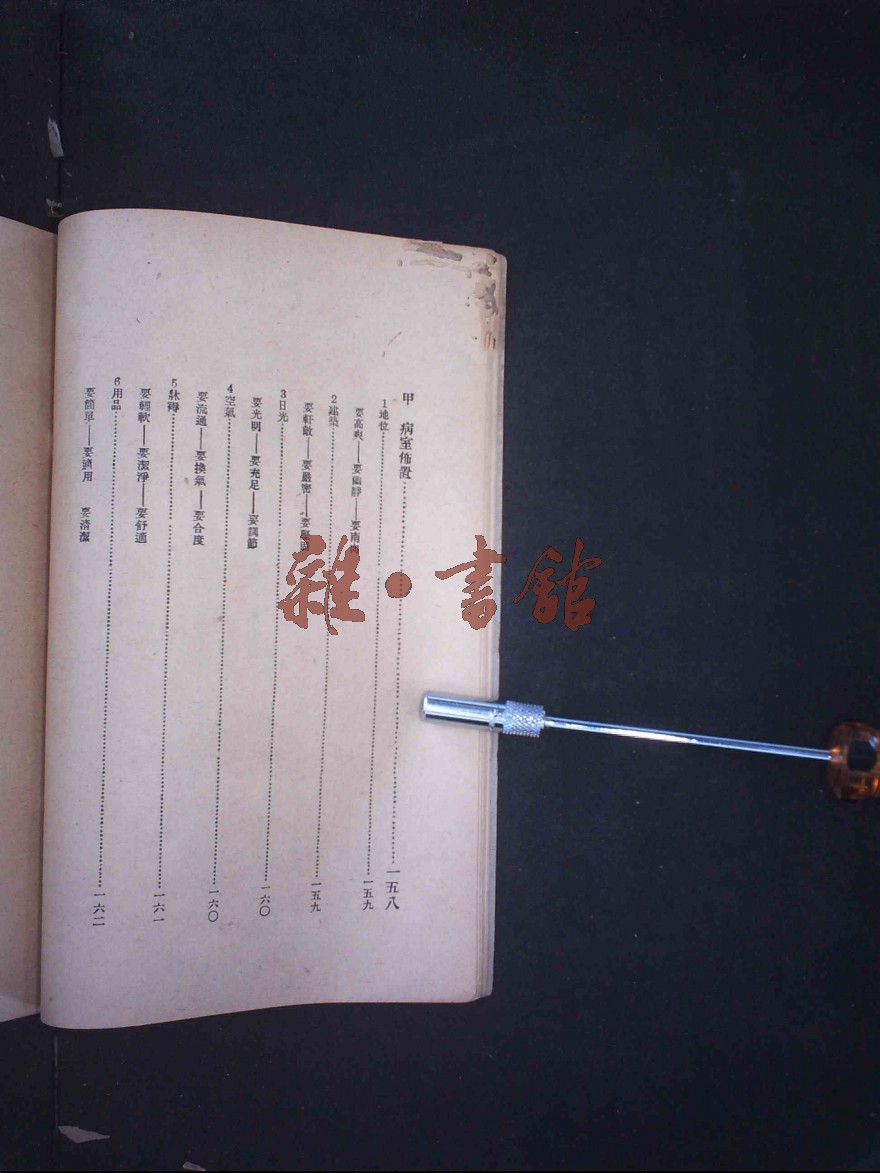 甲　病室佈置…………一五八
1地位…………一五九
要高爽——要幽靜——要南向
2建築…………一五九
要軒敞——要嚴密——要堅固
3日光…………一六〇
要光明——要充足——要調節
4空氣…………一六〇
要流通——要換氣——要合度
5牀褥…………一六一
要輕軟——要潔淨——要舒適
6用品…………一六二
要簡單——要適用　要清潔
雜·書館